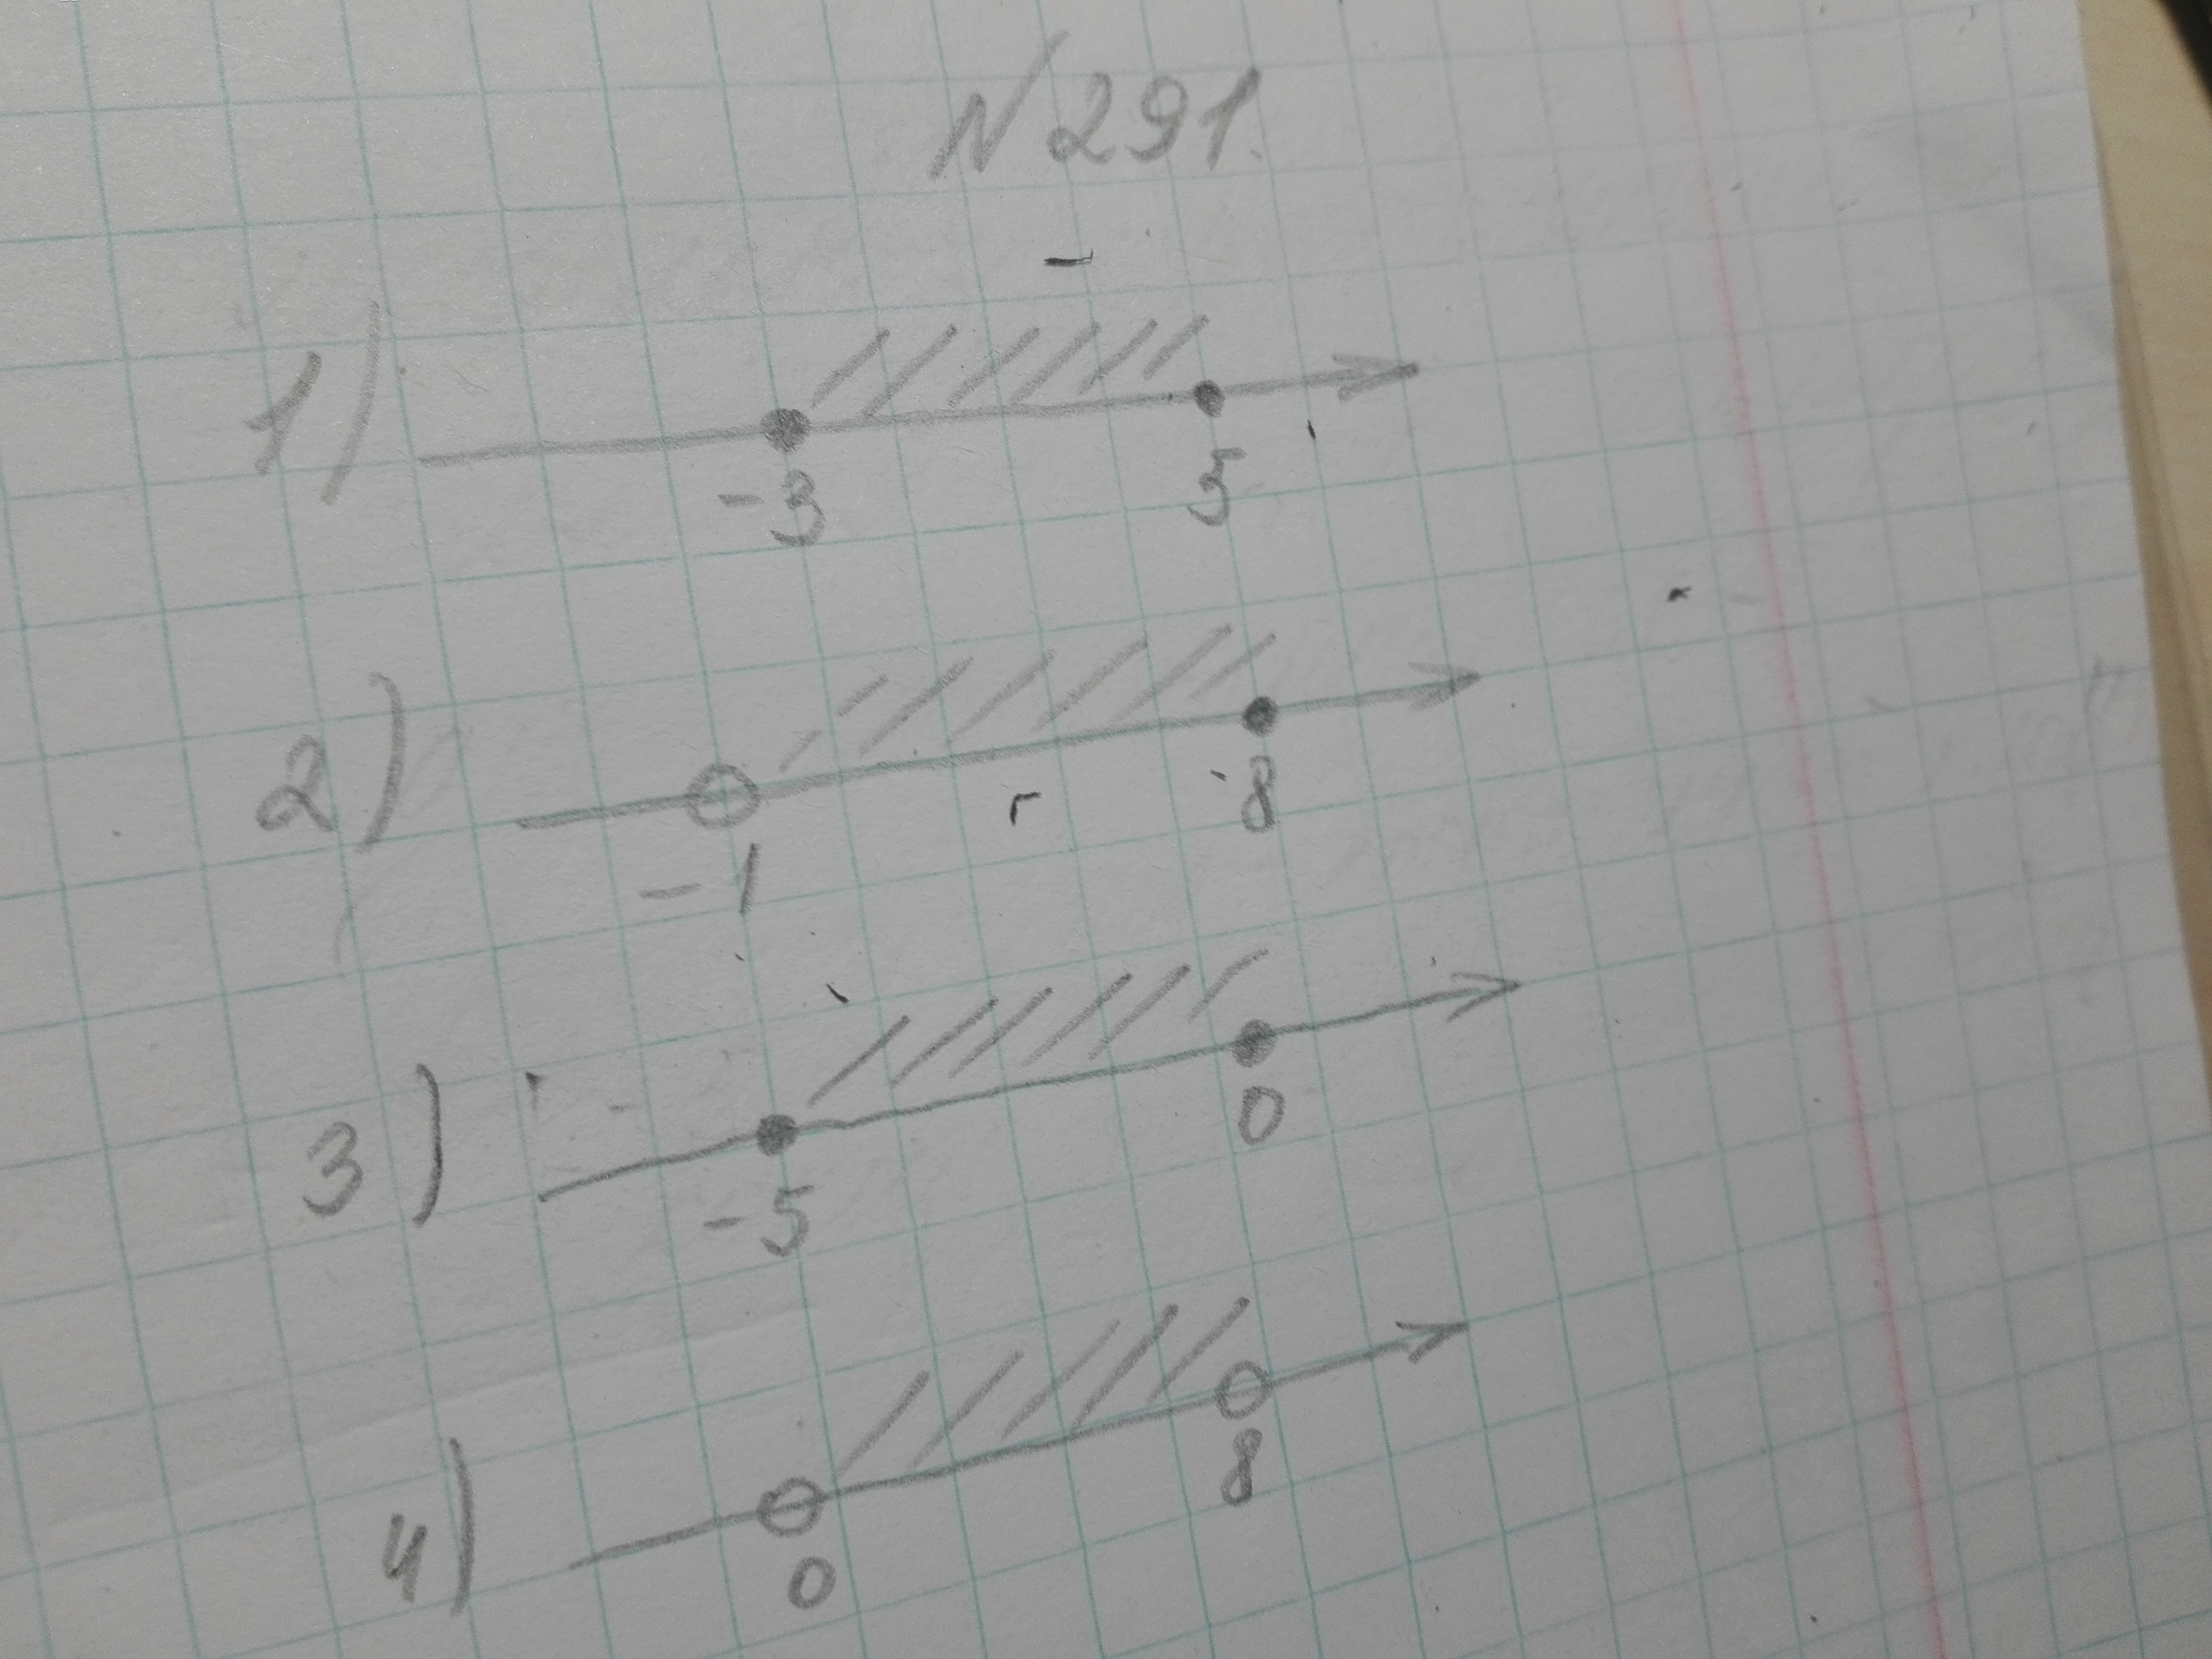 N 291.
1)
-3 5
2)
-1 8
3)
-5 0
4)
0 8